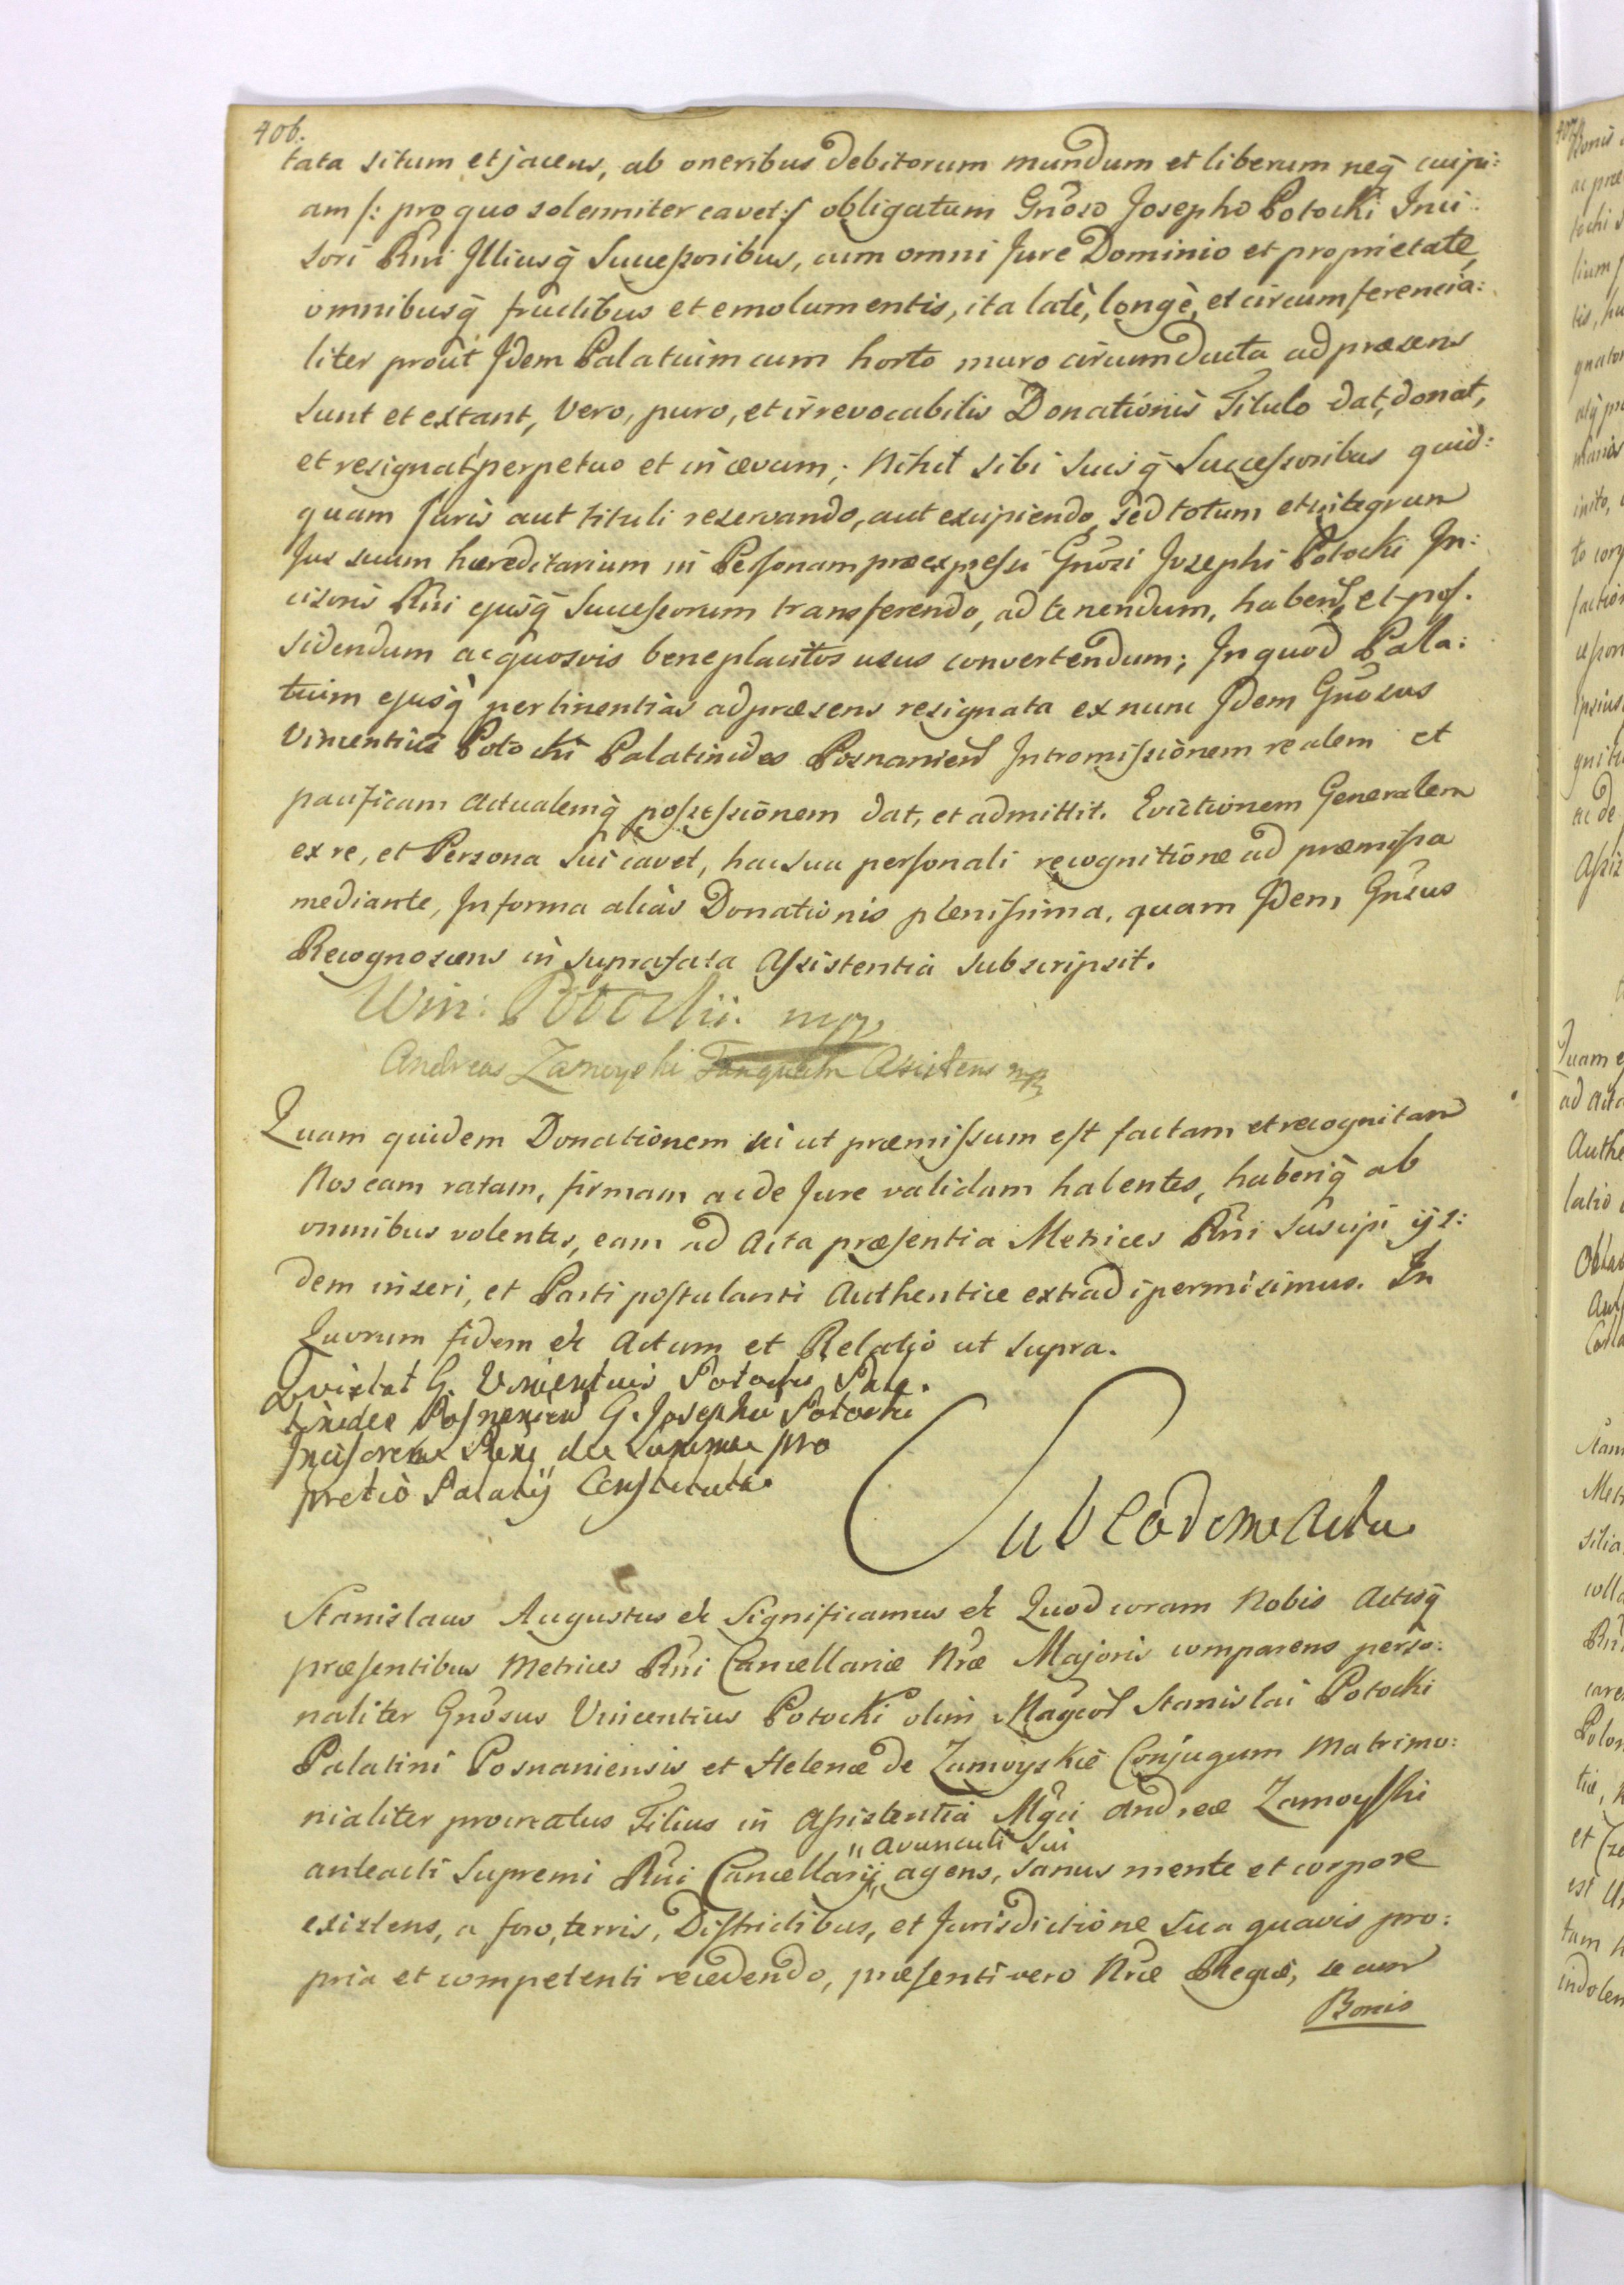 406.
tata situm et jacens, ab oneribus Debitorum mundum et liberum neq̃ cuipi:
am /: pro quo solenniter cavet :/ obligatum Gñoso Josepho Potocki Inci:
sori Rñi Illiusq̃ Successoribus, cum omni Jure Dominio et proprietate,
omnibusq̃ fructibus et emolumentis, ita latè, longè, et circumferencia:
liter prout Idem Palatium cum horto muro circumducta ad præsens
sunt et extant, vero, puro, et irrevocabilis Donationis Titulo dat, donat,
et resignat perpetuo et in ævum; Nihil sibi suisq̃ Successoribus quid:
quam Juris aut tituli reservando, aut excipiendo, sed totum et integrum
Jus suum hæreditarium in Personam præexpressi Gñosi Josephi Potocki In:
cisoris Rñi ejusq̃ Successorum transferendo, ad tenendum, habend et pos.
sidendum ac quosvis beneplacitos usus convertendum; In quod Pala:
tium ejusq̃ pertinentias ad præsens resignata ex nunc Idem Gñosus
Vincentius Potocki Palatinides Posnanien Intromissionem realem et
pacificam actualemq̃ possessionem dat, et admittit. Evictionem Generalem
ex re, et Persona sui cavet, hac sua personali recognitione ad præmissa
mediante, In forma alias Donationis plenissima, quam Idem Gñsus
Recognoscens in suprafata Assistentia subscripsit.
Win: Potocki. mp
Andreas Zamoyski Tanquam Assistens mp
Quam quidem Donationem sic ut præmissum est factam et recognitam
Nos eam ratam, firmam ac de Jure validam habentes, haberiq̃ ab
omnibus volentes, eam ad Acta præsentia Metrices Rñi suscipi ijs:
dem inseri, et Parti postulanti Authentice extradi permisimus. In
Quorum fidem &c Actum et Relatio ut supra.
Quietat G. Vincentius Potocki Pala.
tinides Posnanien G. Josephum Potocki
Incisorem Regni de Summa pro
pretio Palatij Constituta.
Sub Eodem Actu.
Stanislaus Augustus &c Significamus &c Quod coram Nobis Actisq̃
præsentibus Metrices Rñi Cancellariæ Nræ Majoris comparens perso:
naliter Gñosus Vincentius Potocki olim Magcor Stanislai Potocki
Palatini Posnaniensis et Helenæ de Zamoyskie Conjugum Matrimo:
nialiter procreatus Filius in Assistentia Mgci Andreæ Zamoyski
"avunculi sui
anteacti Supremi Rñi Cancellarij, agens, sanus mente et corpore
existens, a foro, terris, Districtibus, et Jurisdictione sua quavis pro:
pria et competenti recedendo, præsenti vero Nræ Regiæ, se cum
Bonis